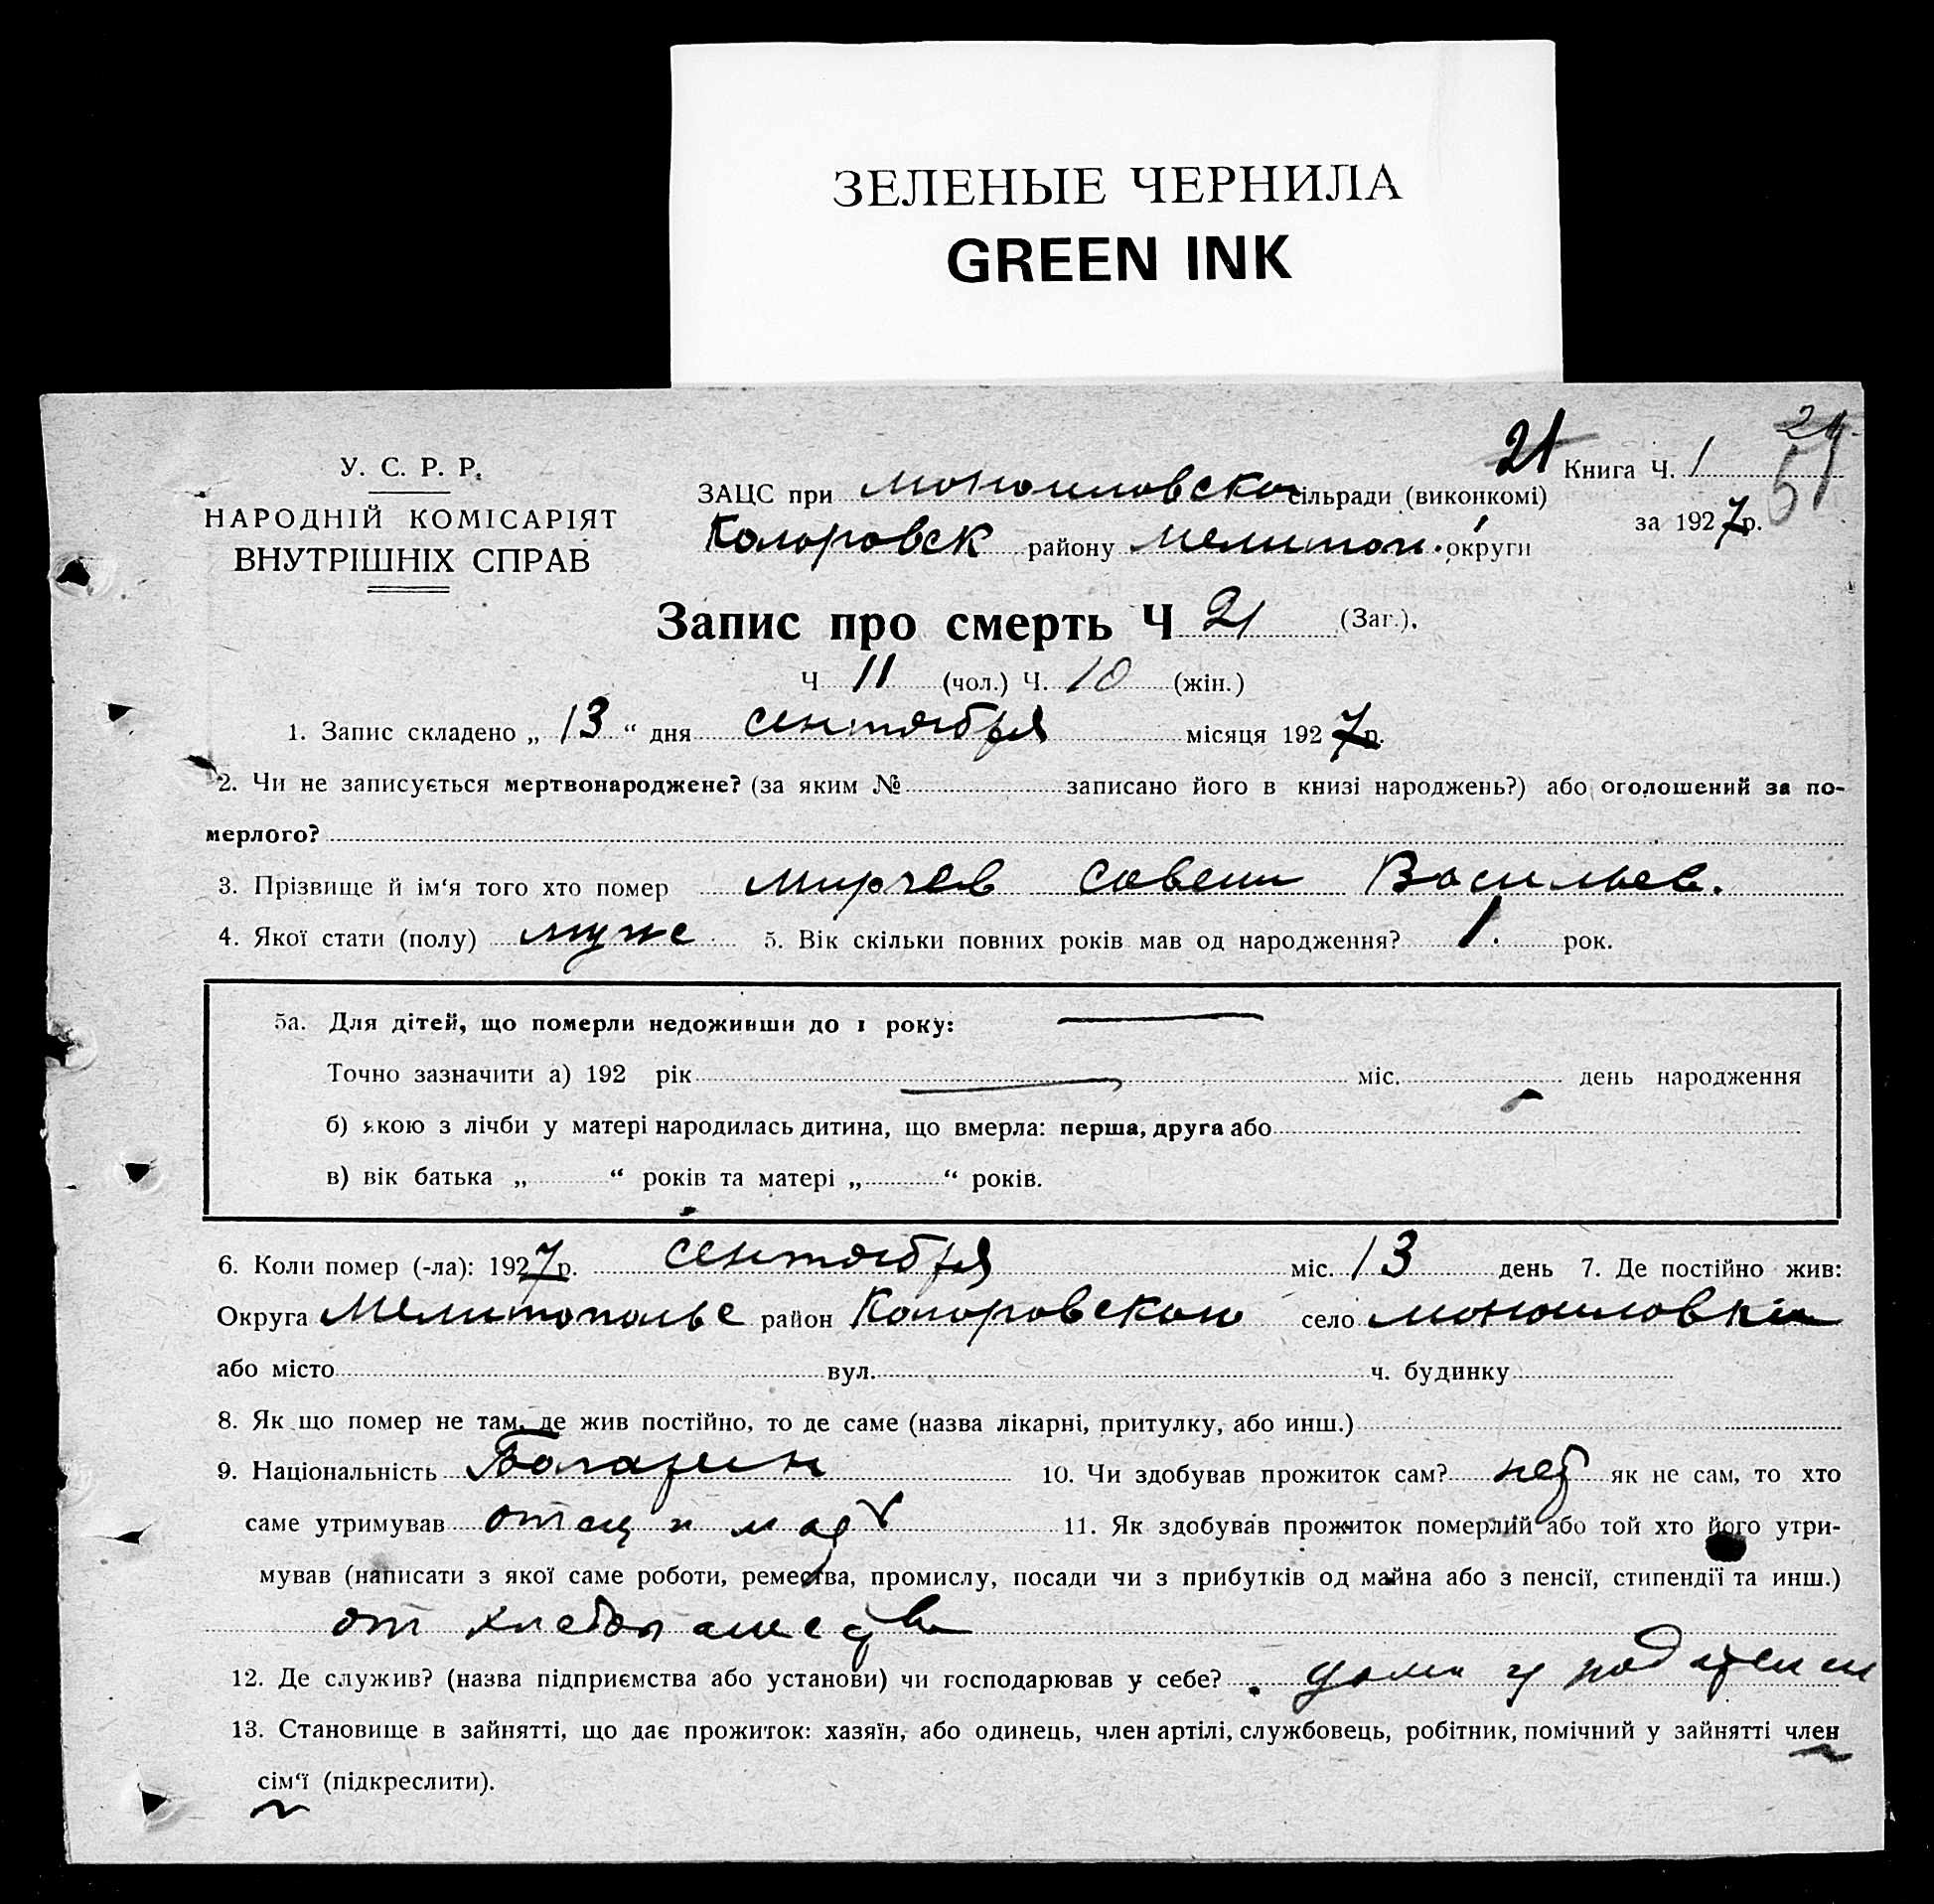 ЗЕЛЕНЫЕ ЧЕРНИЛА
GREEN INK
21 Книга Ч. 1
24
51
У. С. Р. Р.
НАРОДНІЙ КОМІСАРІЯТ
ВНУТРІШНІХ СПРАВ
ЗАЦС при сільради (виконкомі)
за 1927 р.
Коларовск району Мелитоп. округи
Запис про смерть Ч 21 (Заг.).
Ч 11 (чол.) Ч. 10 (жін.)
1. Запис складено „ 13 “ дня сентября місяця 1927 р.
2. Чи не записується мертвонароджене? (за яким № записано його в книзі народжень?) або оголошений за по-
мерлого?
3. Прізвище й ім‘я того хто помер Мирчев Савели Васильев.
4. Якої стати (полу) муже 5. Вік скільки повних років мав од народження? 1. рок.
5а. Для дітей, що померли недоживши до 1 року:
Точно зазначити а) 192 рік міс. день народження
б) якою з лічби у матері народилась дитина, що вмерла: перша, друга або
в) вік батька „ “ років та матері „ “ років.
6. Коли помер (-ла): 1927 р. сентября міс. 13 день 7. Де постійно жив:
Округа Мелитопольс район Коларовского село
або місто вул. ч. будинку
8. Як що помер не там, де жив постійно, то де саме (назва лікарні, притулку, або инш.)
9. Національність Болгарин 10. Чи здобував прожиток сам? нет як не сам, то хто
саме утримував отец и мать 11. Як здобував прожиток померлий або той хто його утри-
мував (написати з якої саме роботи, ремества, промислу, посади чи з прибутків од майна або з пенсії, стипендії та инш.)
от хлебопашества
12. Де служив? (назва підприємства або установи) чи господарював у себе? дома у родители
13. Становище в зайнятті, що дає прожиток: хазяїн, або одинець, член артілі, службовець, робітник, помічний у зайнятті член
сім‘ї (підкреслити).